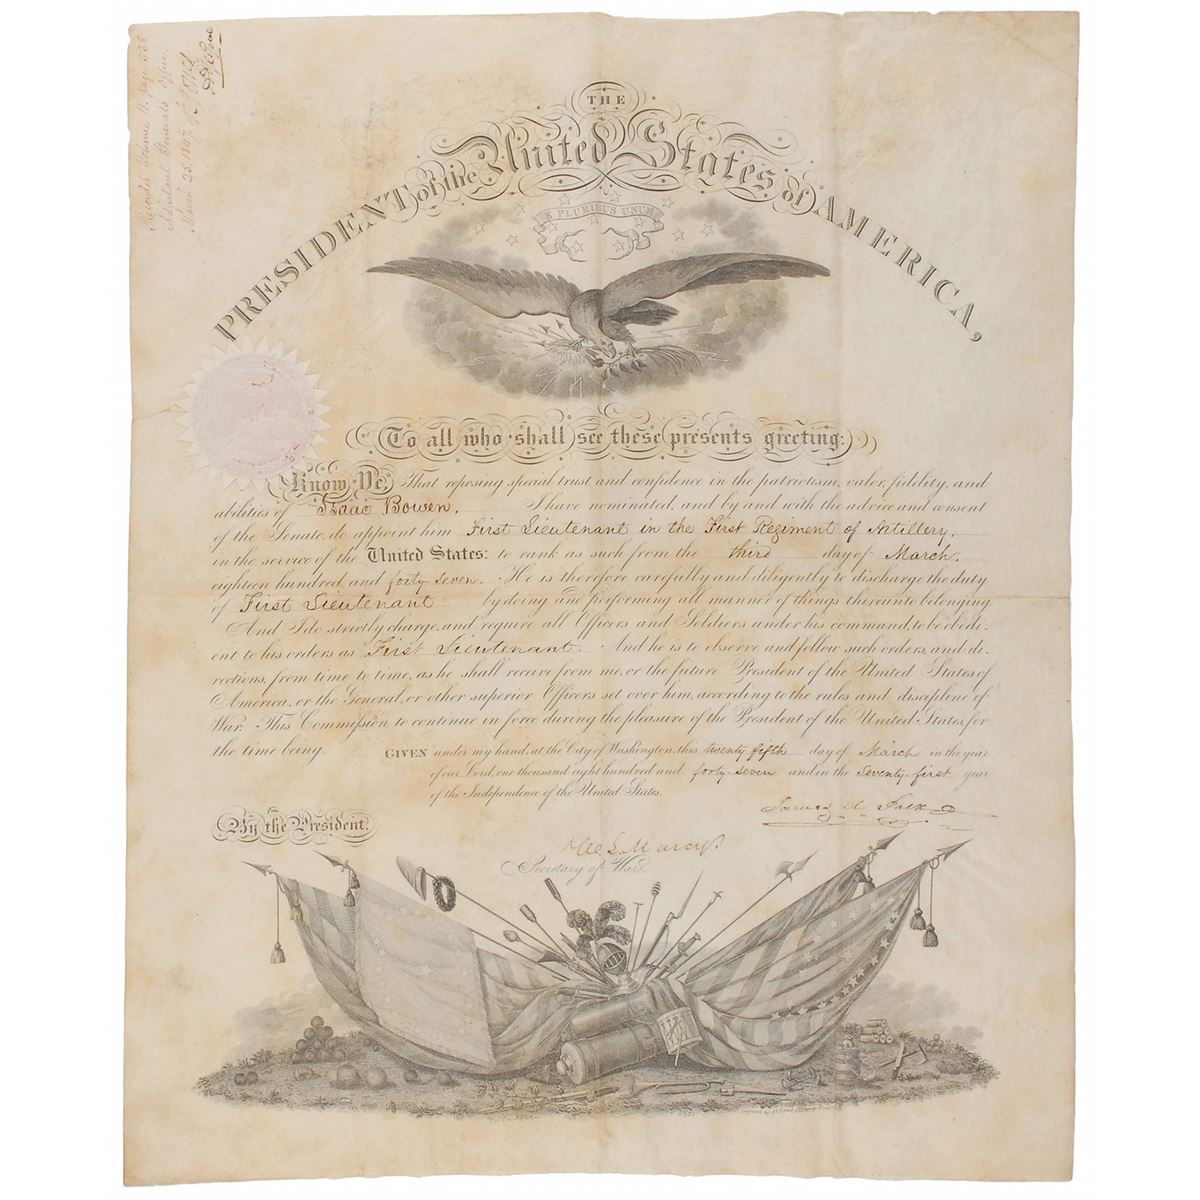 Recorded Volume 11. page 538
Adjutant General's Office,
March 25. 1847.
THE
United States
PRESIDENT of the of AMERICA,
E PLURIBUS UNUM
To all who shall see these presents greeting:
Know Ye, That reposing special trust and confidence in the patriotism, valor, fidelity, and
abilities of Isaac Bowen, I have nominated, and by and with the advice and consent
of the Senate, do appoint him First Lieutenant in the First Regiment of Artillery,
in the service of the United States: to rank as such from the third day of March,
eighteen hundred and forty-seven. He is therefore carefully and diligently to discharge the duty
of First Lieutenant by doing and performing all manner of things thereunto belonging
And I do strictly charge, and require all Officers and Soldiers under his command, to be obedi-
ent to his orders as First Lieutenant. And he is to observe and follow such orders, and di-
rections, from time to time, as he shall receive from me, or the future President of the United States of
America, or the General, or other superior Officers set over him, according to the rules and discipline of
War. This Commission to continue in force during the pleasure of the President of the United States, for
the time being.
GIVEN under my hand, at the City of Washington, this twenty fifth day of March in the year
of our Lord, one thousand eight hundred and forty-seven and in the Seventy-first year
of the Independence of the United States.
James K. Polk
By the President.
W. L. Marcy.
Secretary of War.